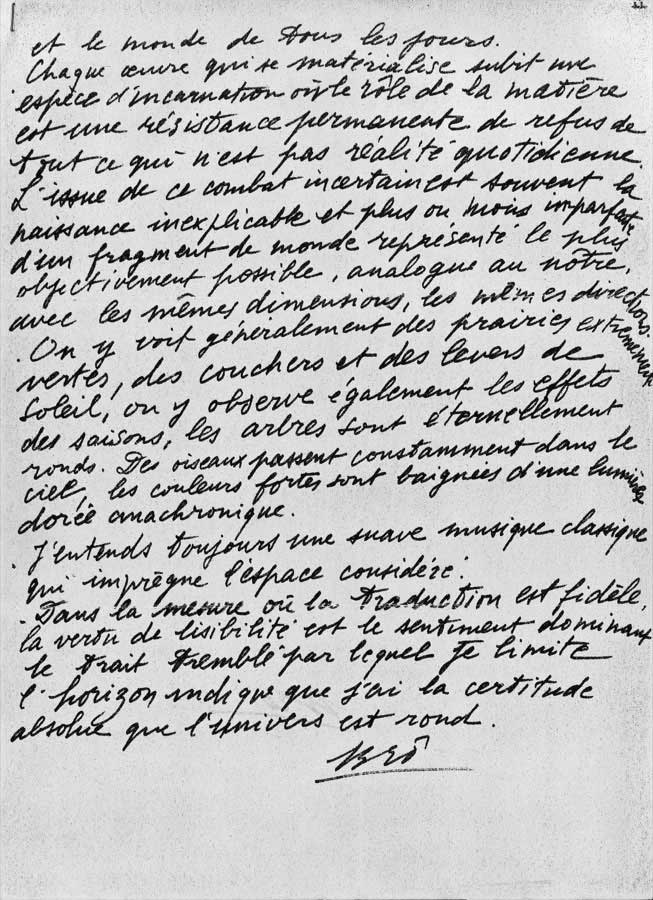 et le monde de tous les jours.
Chaque œuvre qui se matérialise subit une
espèce d'incarnation où le rôle de la matière
est une résistance permanente de refus de
tout ce qui n'est pas réalité quotidienne.
L'issue de ce combat incertain est souvent la
naissance inexplicable et plus ou moins imparfaite
d'un fragment de monde représenté le plus
objectivement possible, analogue au nôtre,
avec les mêmes dimensions, les mêmes directions.
On y voit généralement des prairies extrêmement
vertes, des couchers et des levers de
soleil, on y observe également les effets
des saisons, les arbres sont éternellement
ronds. Des oiseaux passent constamment dans le
ciel, les couleurs fortes sont baignées d'une lumière
dorée anachronique.
J'entends toujours une suave musique classique
qui imprègne l'espace considéré.
Dans la mesure où la traduction est fidèle,
la vertu de lisibilité est le sentiment dominant
le trait tremblé par lequel je limite
l'horizon indique que j'ai la certitude
absolue que l'univers est rond.